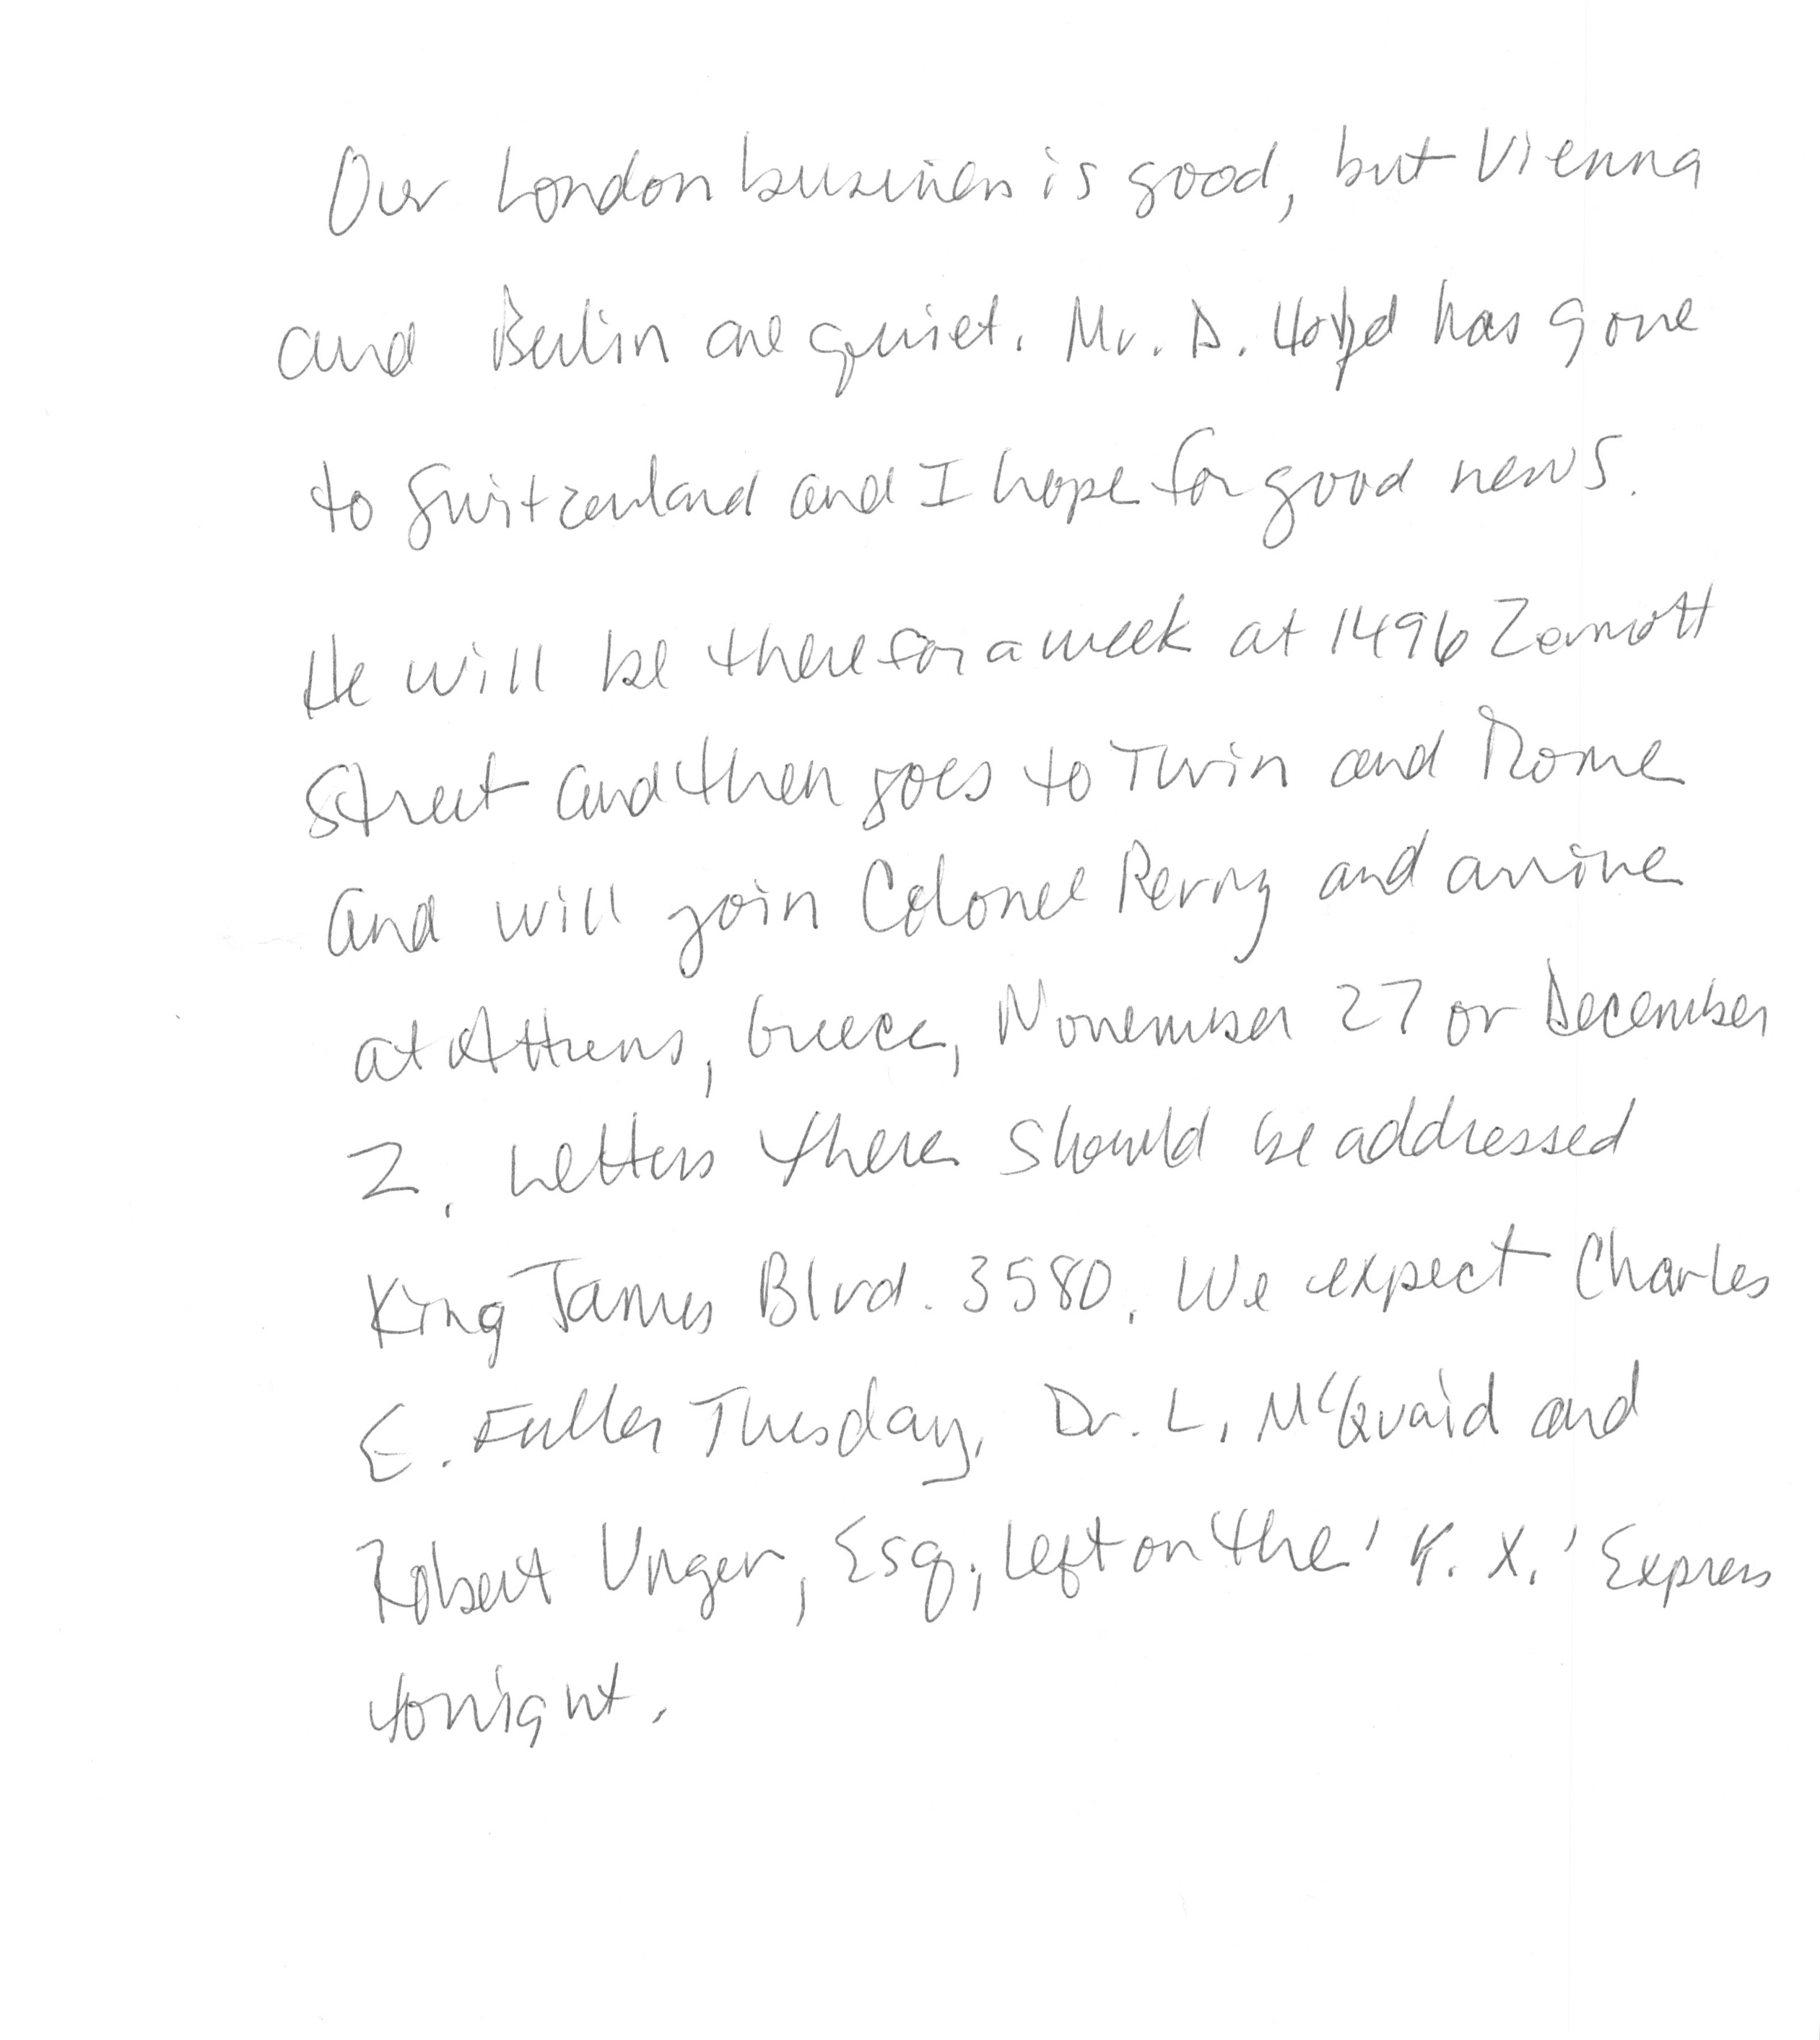 Our London business is good, but Vienna
and Berlin are quiet. Mr. D. Lloyd has gone
to Switzerland and I hope for good news.
He will be there for a week at 1496 Zermott
Street and then goes to Turin and Rome
and will join Colonel Perry and arrive
at Athens, Greece, November 27 or December
2. Letters there should be addressed
King James Blvd. 3580. We expect Charles
E. Fuller Tuesday. Dr. L. McQuaid and
Robert Unger, Esq., left on the 'Y. X.' Express
tonight.